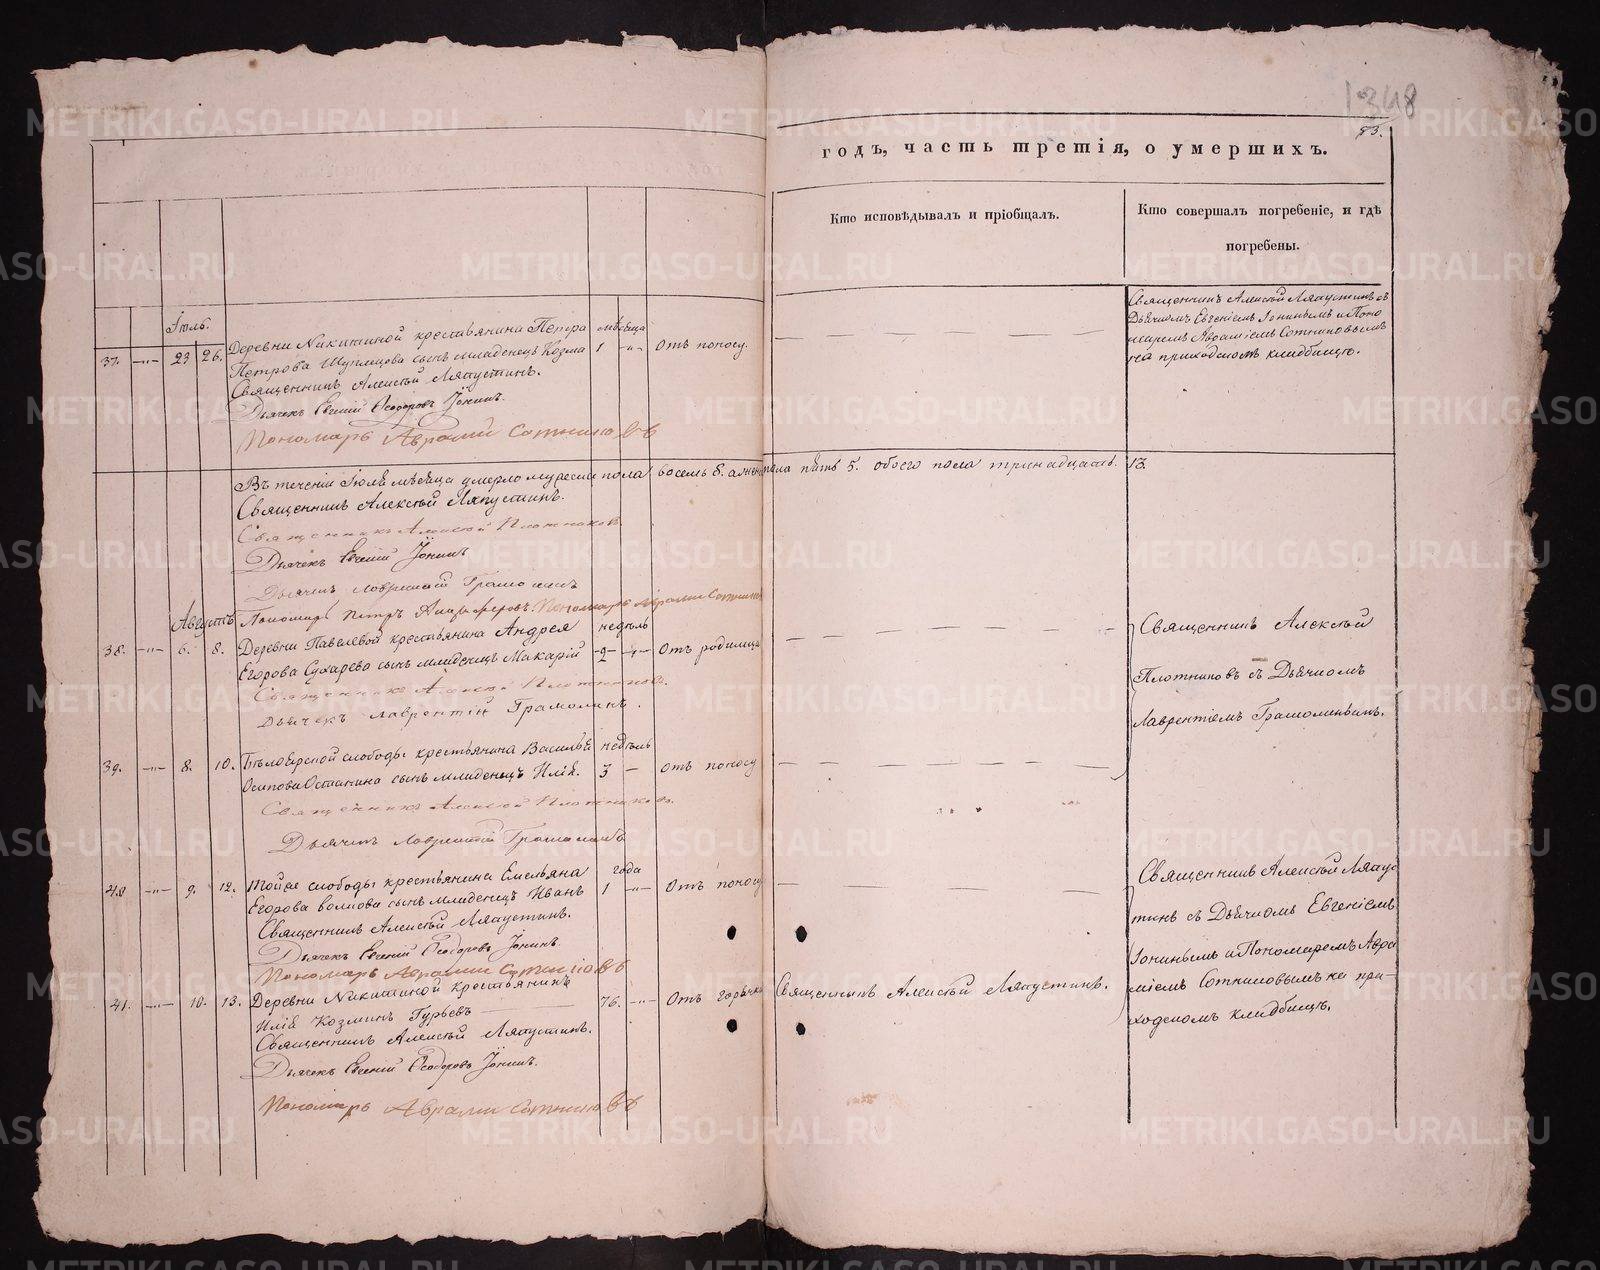 1348
83.
годъ, часть третія, о умершихъ.
Кто исповѣдывалъ и пріобщалъ.
Кто совершалъ погребеніе, и гдѣ
погребены.
Іюль.
37. 23 26.
Деревни Никитиной крестьянина Петра
Петрова сынъ младенецъ Козма
Священникъ Алексѣй Ляпустинъ.
Дьячекъ Евгеній Ѳеодоровъ Іонинъ.
Пономарь Аврамій Сотниковъ
мѣсяца
1
Отъ поносу.
Священникъ Алексѣй Ляпустинъ съ
Дьячкомъ Евгеніемъ Іонинымъ и Поно
маремъ Авраміемъ Сотниковымъ
на приходскомъ кладбищѣ.
Въ теченіи Іюля мѣсяца умерло мужеска пола восемь 8. а женска пола пять 5. обоего пола тринадцать. 13.
Священникъ Алексѣй Ляпустинъ.
Священникъ Алексѣй Плотниковъ.
Дьячекъ Евгеній Іонинъ
Дьячекъ Лаврентій
Пономарь Петръ Пономарь Аврамій Сотниковъ
Августъ
38. 6. 8.
Деревни Павелевой крестьянина Андрея
Егорова Сухарева сынъ младенецъ Макарій
Священникъ Алексѣй Плотниковъ.
Дьячекъ Лаврентій
недѣль
2
Отъ родимца
Священникъ Алексѣй
Плотниковъ съ Дьячкомъ
Лаврентіемъ
39. 8. 10.
Бѣлоярской слободы крестьянина Василья
Осипова Останина сынъ младенецъ Илія.
Священникъ Алексѣй Плотниковъ.
Дьячекъ Лаврентій
недѣль
3
отъ поносу
40 9. 12.
Тойже слободы крестьянина Емельяна
Егорова Волкова сынъ младенецъ Иванъ
Священникъ Алексѣй Ляпустинъ.
Дьячекъ Евгеній Ѳеодоровъ Іонинъ.
Пономарь Аврамій Сотниковъ
года
1
Отъ поносу
Священникъ Алексѣй Ляпу
тинъ съ Дьячкомъ Евгеніемъ
Іонинымъ и Пономаремъ Авра
міемъ Сотниковымъ на при-
ходскомъ кладбищѣ.
41. 10. 13.
Деревни Никитиной крестьянинъ
Илія Козминъ Гурьевъ
Священникъ Алексѣй Ляпустинъ.
Дьячекъ Евгеній Ѳеодоровъ Іонинъ.
Пономарь Аврамій Сотниковъ
76.
Отъ горячки
Священникъ Алексѣй Ляпустинъ.
METRIKI.GASO-URAL.RU